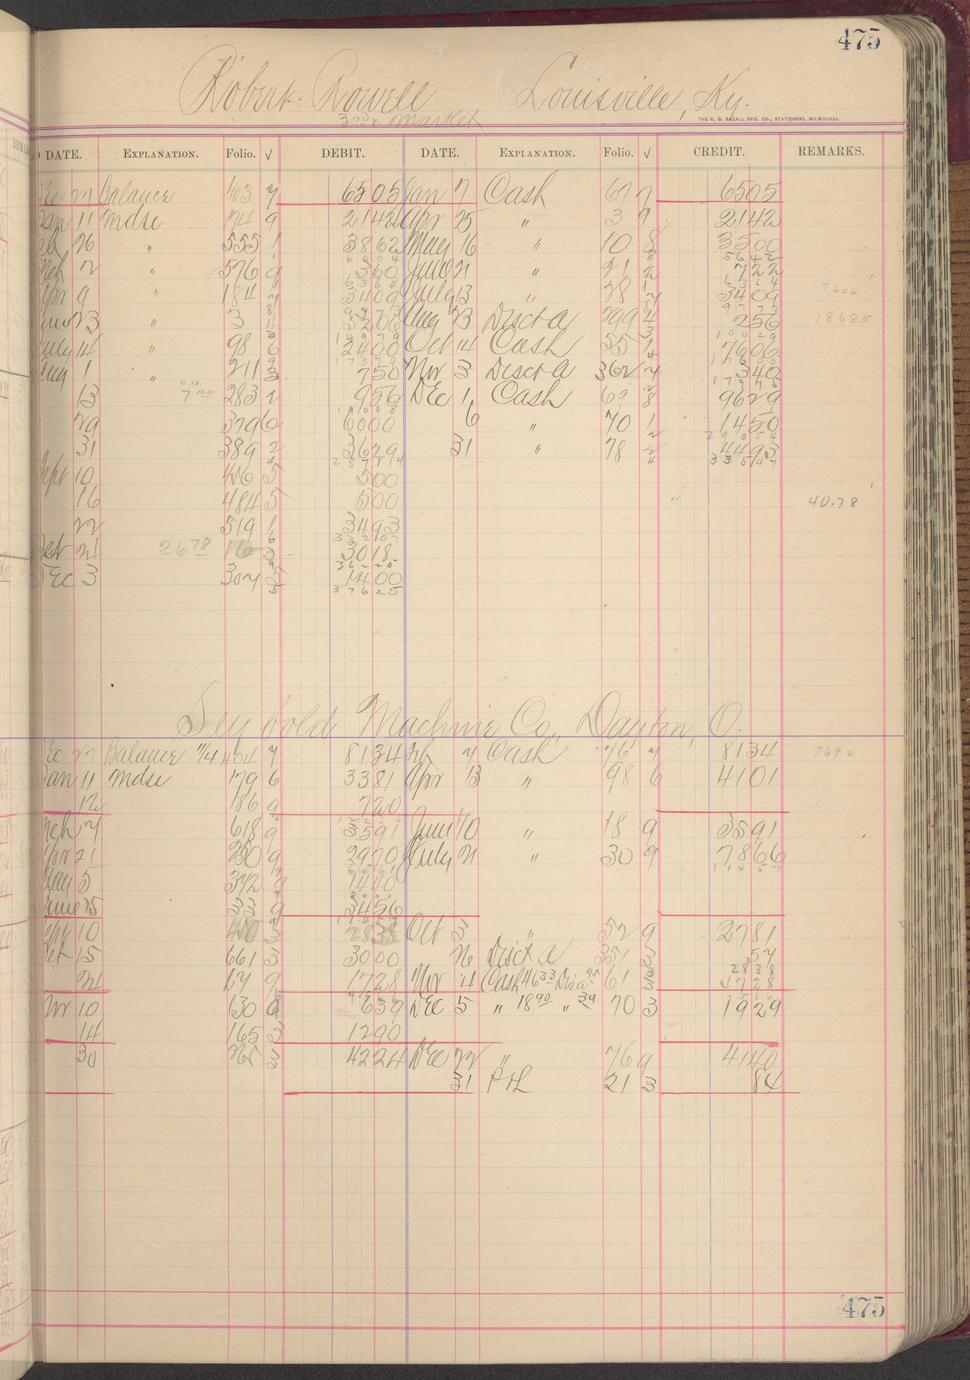 475
Robert Rowell Louisville, Ky.
3rd & Market
THE H. G. RAZALL MFG. CO., STATIONERS, MILWAUKEE.
DATE. EXPLANATION. Folio. √ DEBIT. DATE. EXPLANATION. Folio. √ CREDIT. REMARKS.
27 Balance 403 7 6505 Jan 7 Cash 67 7 6505
Jan 11 Mdse 174 9 2142 Apr 25 " 3 9 2142
26 " 555 1 3862 May 16 " 10 8 3500
Mch 2 " 576 9 360 June 21 " 21 2 722
Apr 9 " 184 7 3409 July 13 " 28 7 3409
June 23 " 3 4 3276 Aug 23 Disct a 299 4 256 18685
July 14 " 98 6 2400 Oct 14 Cash 55 1 7606
Aug 1 " 211 3 750 Nov 3 Disct a 362 7 340
13 7 00 283 2 956 Dec 1 Cash 69 8 9629
29 379 6 6000 6 " 70 1 1450
31 389 2 3629 31 " 78 2 4493
Sept 10 426 5 500
16 484 5 500 40.78
22 519 1 3493
Oct 21 26 78 16 3018
Dec 3 307 5 1400
3 7 6 2 5
Seybold Machine Co., Dayton, O.
Dec 27 Balance 11/4 404 7 8134 Feb 7 Cash 76 7 8134 7692
Jan 11 Mdse 179 6 3381 Apr 13 " 98 6 4101
12 186 9 720
Mch 7 618 9 3591 June 10 " 18 9 3591
Apr 21 230 9 2970 July 21 " 30 9 7866
May 5 342 9 1440
June 25 33 9 3456
Sept 10 450 3 2838 Oct 3 " 52 9 2781
Oct 15 661 3 3000 26 Disct a 351 3 57
24 67 9 1728 Nov 4 Cash 46 33 Dis a 95 61 3 4728
Nov 10 130 639 Dec 5 " 18 90 " 39 70 3 1929
14 165 3 1290
30 265 3 4224 Dec 22 " 76 9 4140
31 P&L 21 3 84
475